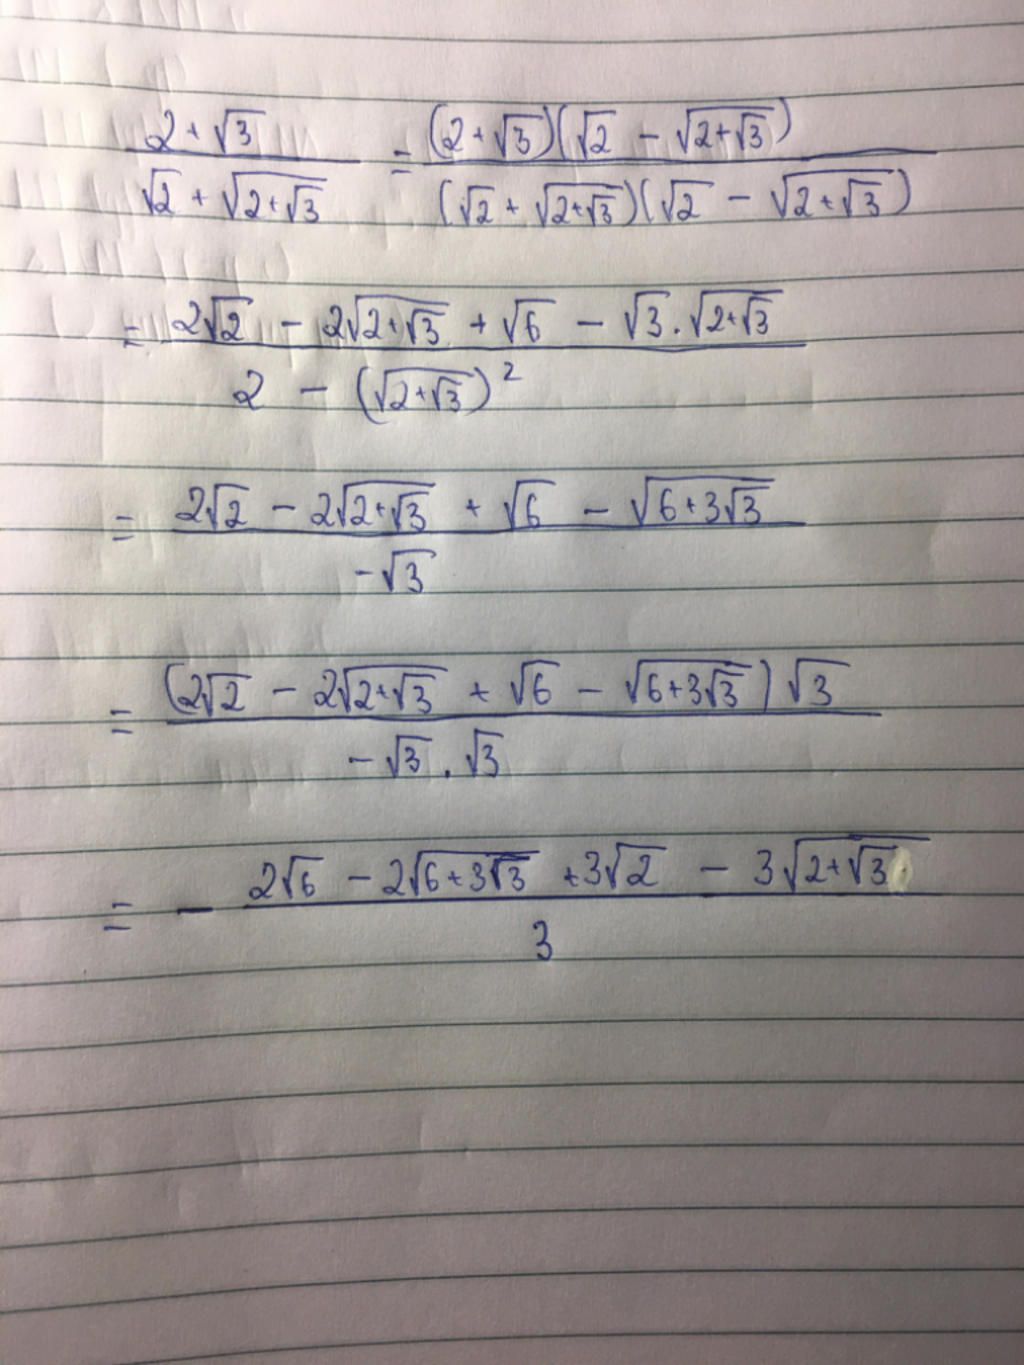 (2+√3)/(√2+√(2+√3)) = ((2+√3)(√2 - √(2+√3)))/((√2+√(2+√3))(√2 - √(2+√3)))
= (2√2 - 2√(2+√3) + √6 - √3.√(2+√3))/(2 - (√(2+√3))²)
= (2√2 - 2√(2+√3) + √6 - √(6+3√3))/(-√3)
= ((2√2 - 2√(2+√3) + √6 - √(6+3√3))√3)/(-√3.√3)
= - (2√6 - 2√(6+3√3) + 3√2 - 3√(2+√3))/3